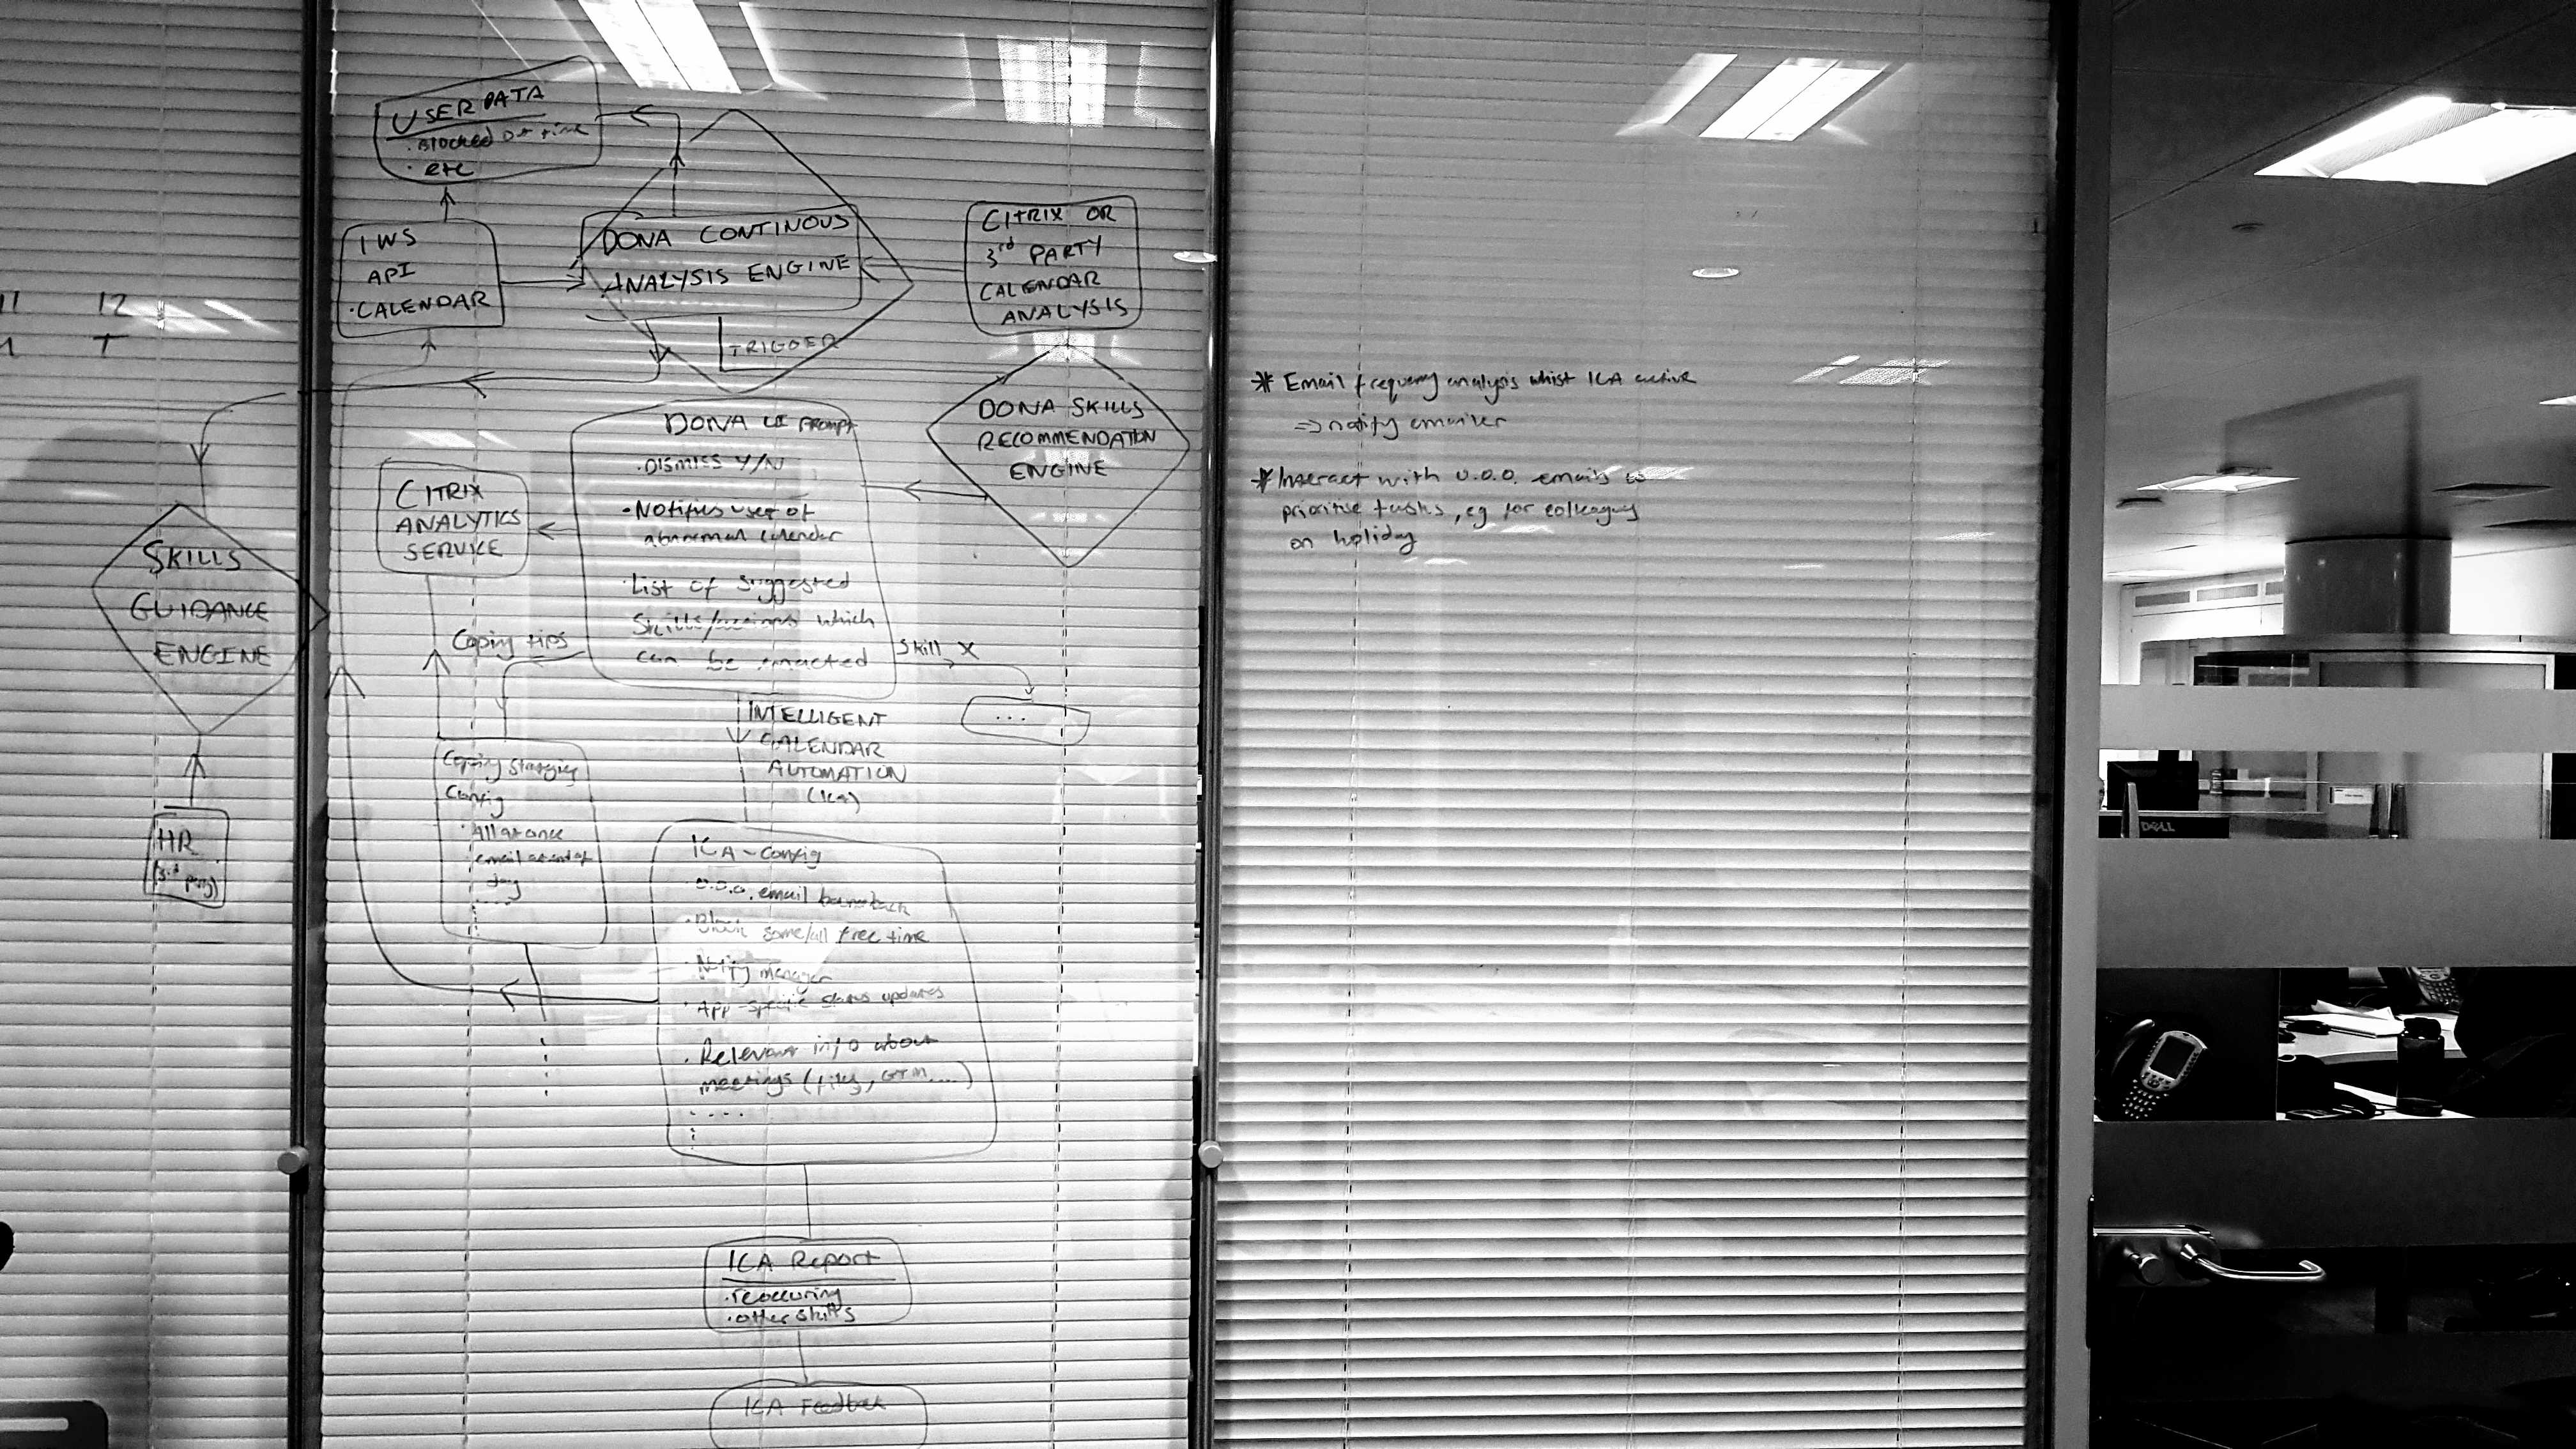 11 12
T
USER DATA
· Blocked out time
· etc
IWS
API
· CALENDAR
DONA CONTINOUS
ANALYSIS ENGINE
TRIGGER
CITRIX OR
3rd PARTY
CALENDAR
ANALYSIS
DONA SKILLS
RECOMMENDATION
ENGINE
DONA UI PROMPT
· DISMISS Y/N
· Notifies user of
abnormal calendar
· List of suggested
Skills/ which
can be enacted
CITRIX
ANALYTICS
SERVICE
SKILLS
GUIDANCE
ENGINE
HR
(3rd party)
Coping tips
Skill X
...
Coping Strategy
Config
· All at once
email at end of
day
....
INTELLIGENT
CALENDAR
AUTOMATION
(ICA)
ICA - Config
· O.O.O. email bounceback
· Block some/all free time
· Notify manager
· App-specific status updates
· Relevant info about
meetings (files, GTM....)
....
ICA Report
· reoccuring
· other skills
ICA Feedback
* Email frequency analysis whist ICA active
=> notify emailer
* Interact with O.O.O. emails to
prioritise tasks, eg for colleagues
on holiday
DELL